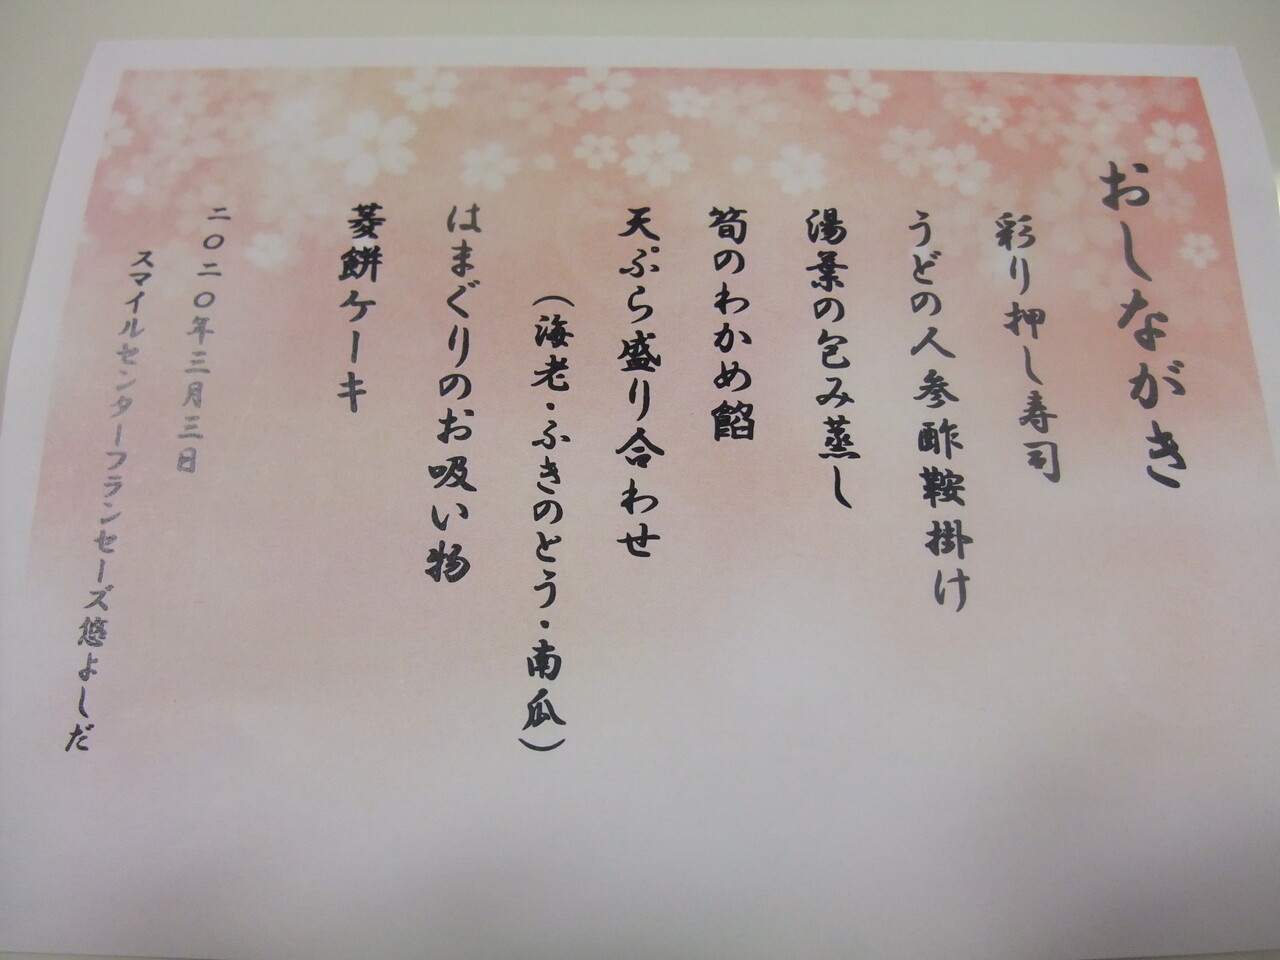 おしながき
彩り押し寿司
うどの人参酢鞍掛け
湯葉の包み蒸し
筍のわかめ餡
天ぷら盛り合わせ
（海老・ふきのとう・南瓜）
はまぐりのお吸い物
菱餅ケーキ
二〇二〇年三月三日
スマイルセンターフランセーズ悠よしだ